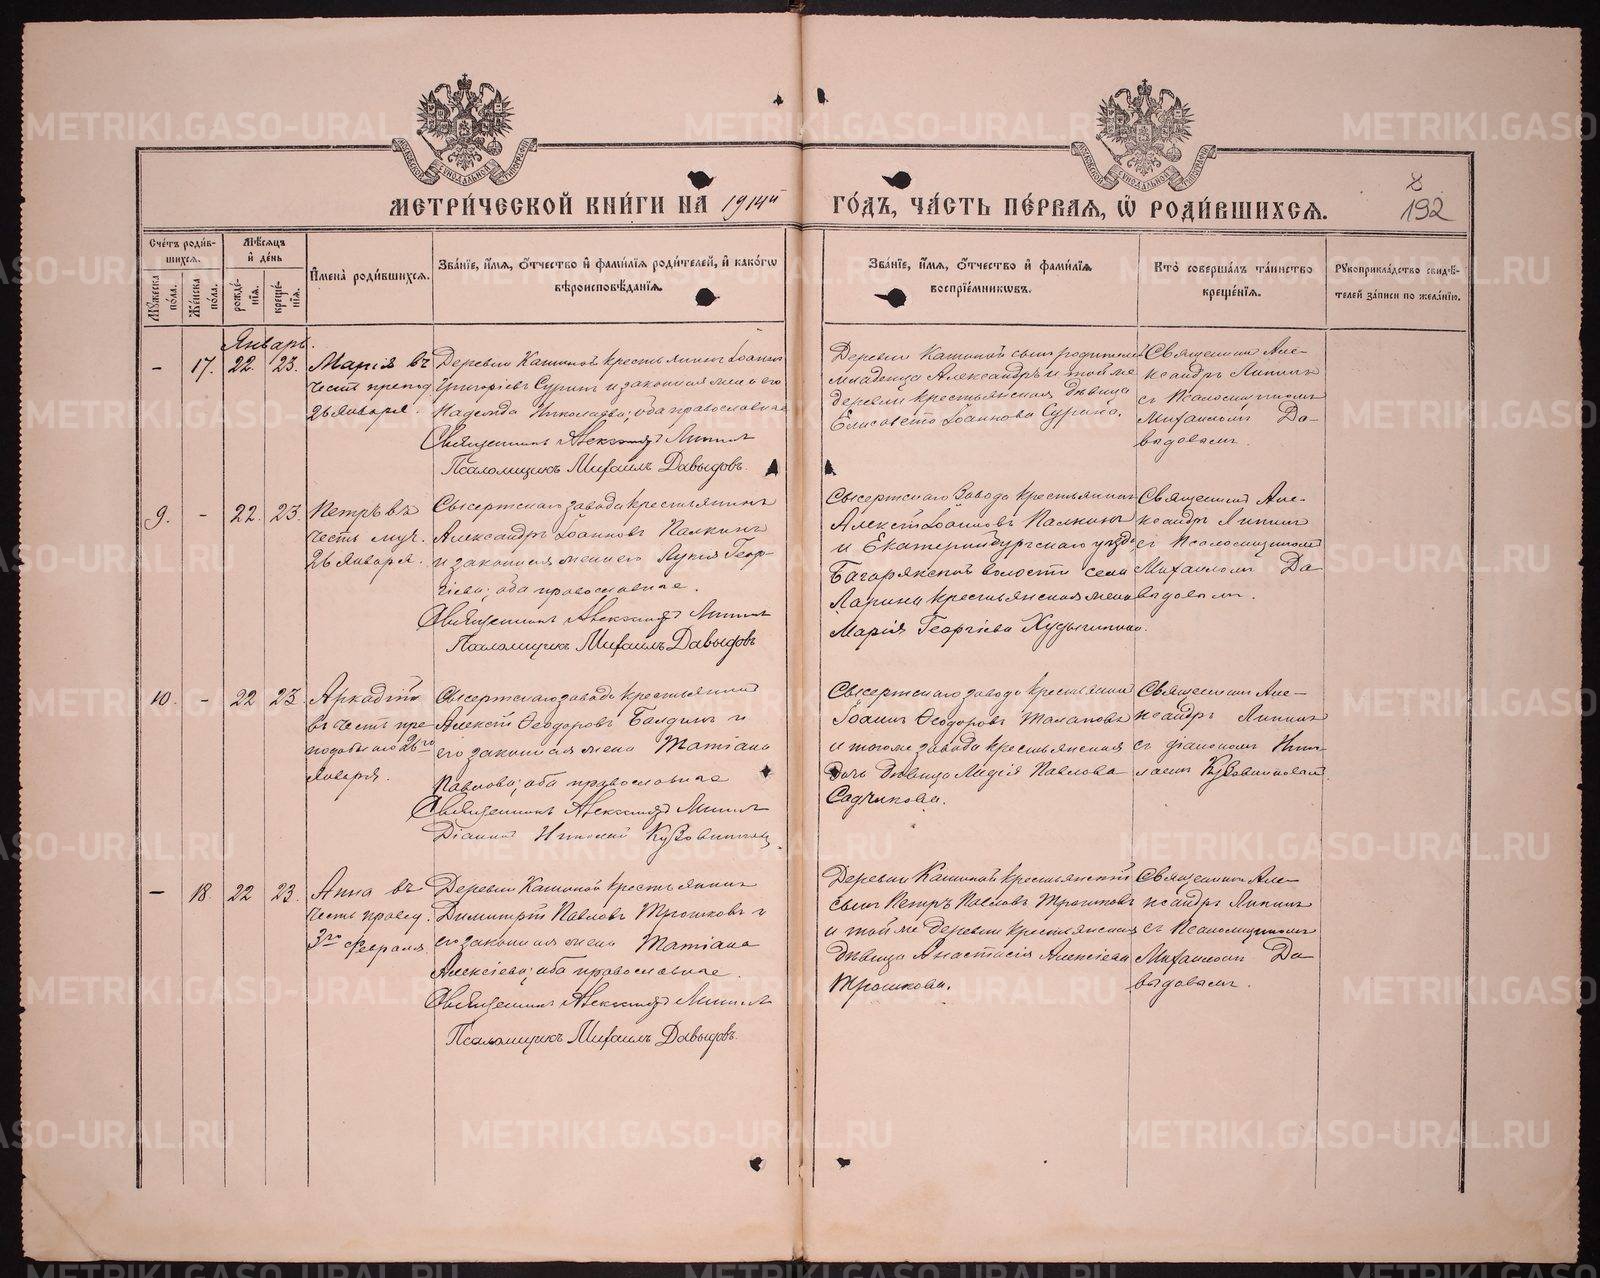 МЕТРИЧЕСКОЙ КНИГИ НА 1914й ГОДЪ, ЧАСТЬ ПЕРВАЯ, Ѡ РОДИВШИХСЯ.
192
Счетъ родив-
шихся.
Мужеска пола.
Женска пола.
Мѣсяцъ и день
рожде-
нія.
креще-
нія.
Имена родившихся.
Званіе, имя, отчество и фамилія родителей, и какогѡ
вѣроисповѣданія.
Званіе, имя, отчество и фамилія
воспріемникѡвъ.
Кто совершалъ таинство
крещенія.
Рукоприкладство свидѣ-
телей записи по желанію.
Январь.
- 17. 22. 23.
Марія въ
честь препод.
26 Января.
Деревни Кашиной крестьянинъ Іоаннъ
Григоріевъ Суринъ и законная жена его
Надежда Николаева; оба православные
Священникъ Александръ Липинъ
Псаломщикъ Михаилъ Давыдовъ.
Деревни Кашиной сынъ родителей
младенца Александръ и той же
деревни крестьянская дѣвица
Елисавета Іоаннова Сурина.
Священникъ Але-
ксандръ Липинъ
съ Псаломщикомъ
Михаиломъ Да-
выдовымъ.
9. - 22. 23.
Петръ въ
честь муч.
26 Января.
Сысертскаго завода крестьянинъ
Александръ Іоанновъ Палкинъ
и законная жена его Лукія Геор-
гіева; оба православные.
Священникъ Александръ Липинъ
Псаломщикъ Михаилъ Давыдовъ
Сысертскаго Завода крестьянинъ
Алексѣй Іоанновъ Палкинъ
и Екатеринбургскаго уѣзда
Багарякской волости села
Ларина крестьянская жена
Марія Георгіева
Священникъ Але-
ксандръ Липинъ
съ Псаломщикомъ
Михаиломъ Да-
выдовымъ.
10. - 22 23.
Аркадій
въ честь пре-
подобнаго 26го
Января.
Сысертскаго завода крестьянинъ
Алексѣй Ѳеодоровъ Балдинъ и
его законная жена Татіана
Павлова; оба православные
Священникъ Александръ Липинъ
Діаконъ Николай Кузовниковъ.
Сысертскаго завода крестьянинъ
Іоаннъ Ѳеодоровъ Талановъ
и того же завода крестьянская
дочь дѣвица Лидія Павлова
Садчикова.
Священникъ Але-
ксандръ Липинъ
съ діакономъ Нико-
лаемъ Кузовниковымъ
- 18. 22 23.
Анна въ
честь правед.
3го Февраля.
Деревни Кашиной крестьянинъ
Димитрій Павловъ Трошковъ и
его законная жена Татіана
Алексіева; оба православные.
Священникъ Александръ Липинъ
Псаломщикъ Михаилъ Давыдовъ.
Деревни Кашиной крестьянскій
сынъ Петръ Павловъ Трошковъ
и той же деревни крестьянская
дѣвица Анастасія Алексіева
Трошкова.
Священникъ Але-
ксандръ Липинъ
съ Псаломщикомъ
Михаиломъ Да-
выдовымъ.
METRIKI.GASO-URAL.RU